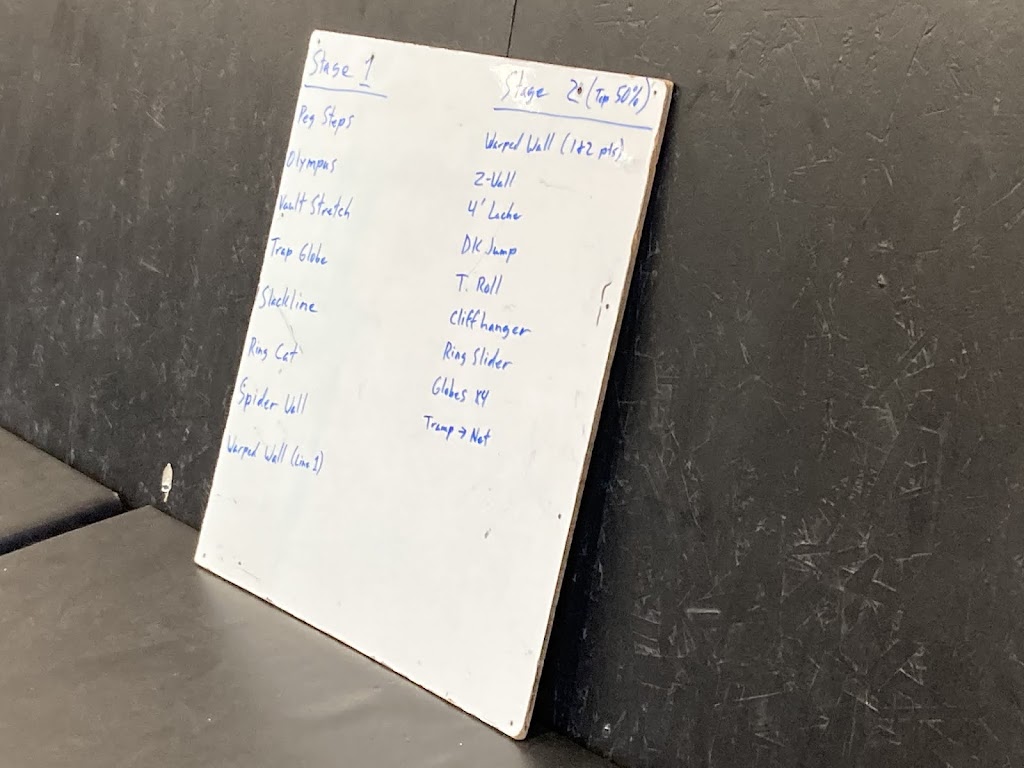 Stage 1
Peg Steps
Olympus
Vault Stretch
Trap Globe
Slackline
Ring Cat
Spider Wall
Warped Wall (Line 1)
Stage 2 (Top 50%)
Warped Wall (1&2 pts)
Z-Wall
4' Lache
DK Jump
T. Roll
Cliffhanger
Ring Slider
Globes x4
Tramp → Net